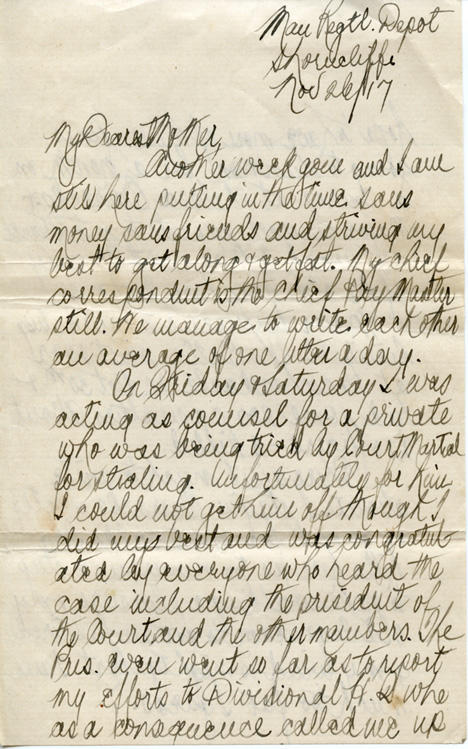 Man Regtl. Depot
Shorncliffe
Nov 26/17
My Dearest Mother,
Another week gone and I am
still here putting in the time sans
money sans friends and striving my
best to get along & get fat. My chief
correspondent is the Chief Pay Master
still. We manage to write each other
an average of one letter a day.
On Friday & Saturday I was
acting as counsel for a private
who was being tried by Court Martial
for stealing. Unfortunately for him
I could not get him off though I
did my best and was congratul
ated by everyone who heard the
case including the president of
the Court and the other members. The
Pres. even went so far as to report
my efforts to Divisional H.Q. who
as a consequence called me up